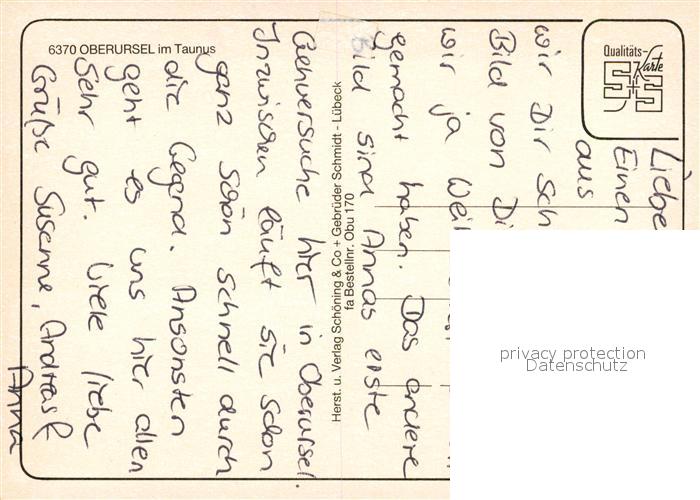 6370 OBERURSEL im Taunus
Qualitäts-
Karte
S+S
Herst. u. Verlag Schöning & Co + Gebrüder Schmidt - Lübeck
fa Bestellnr. Obu 170
Liebe
Einen
aus
wir Dir
Bild von
wir ja
gemacht haben. Das andere
Bild sind Annas erste
Gehversuche hier in Oberursel.
Inzwischen läuft sie schon
ganz schön schnell durch
die Gegend. Ansonsten
geht es uns hier allen
sehr gut. Viele liebe
Grüße Susanne, Andreas &
Anna
privacy protection
Datenschutz